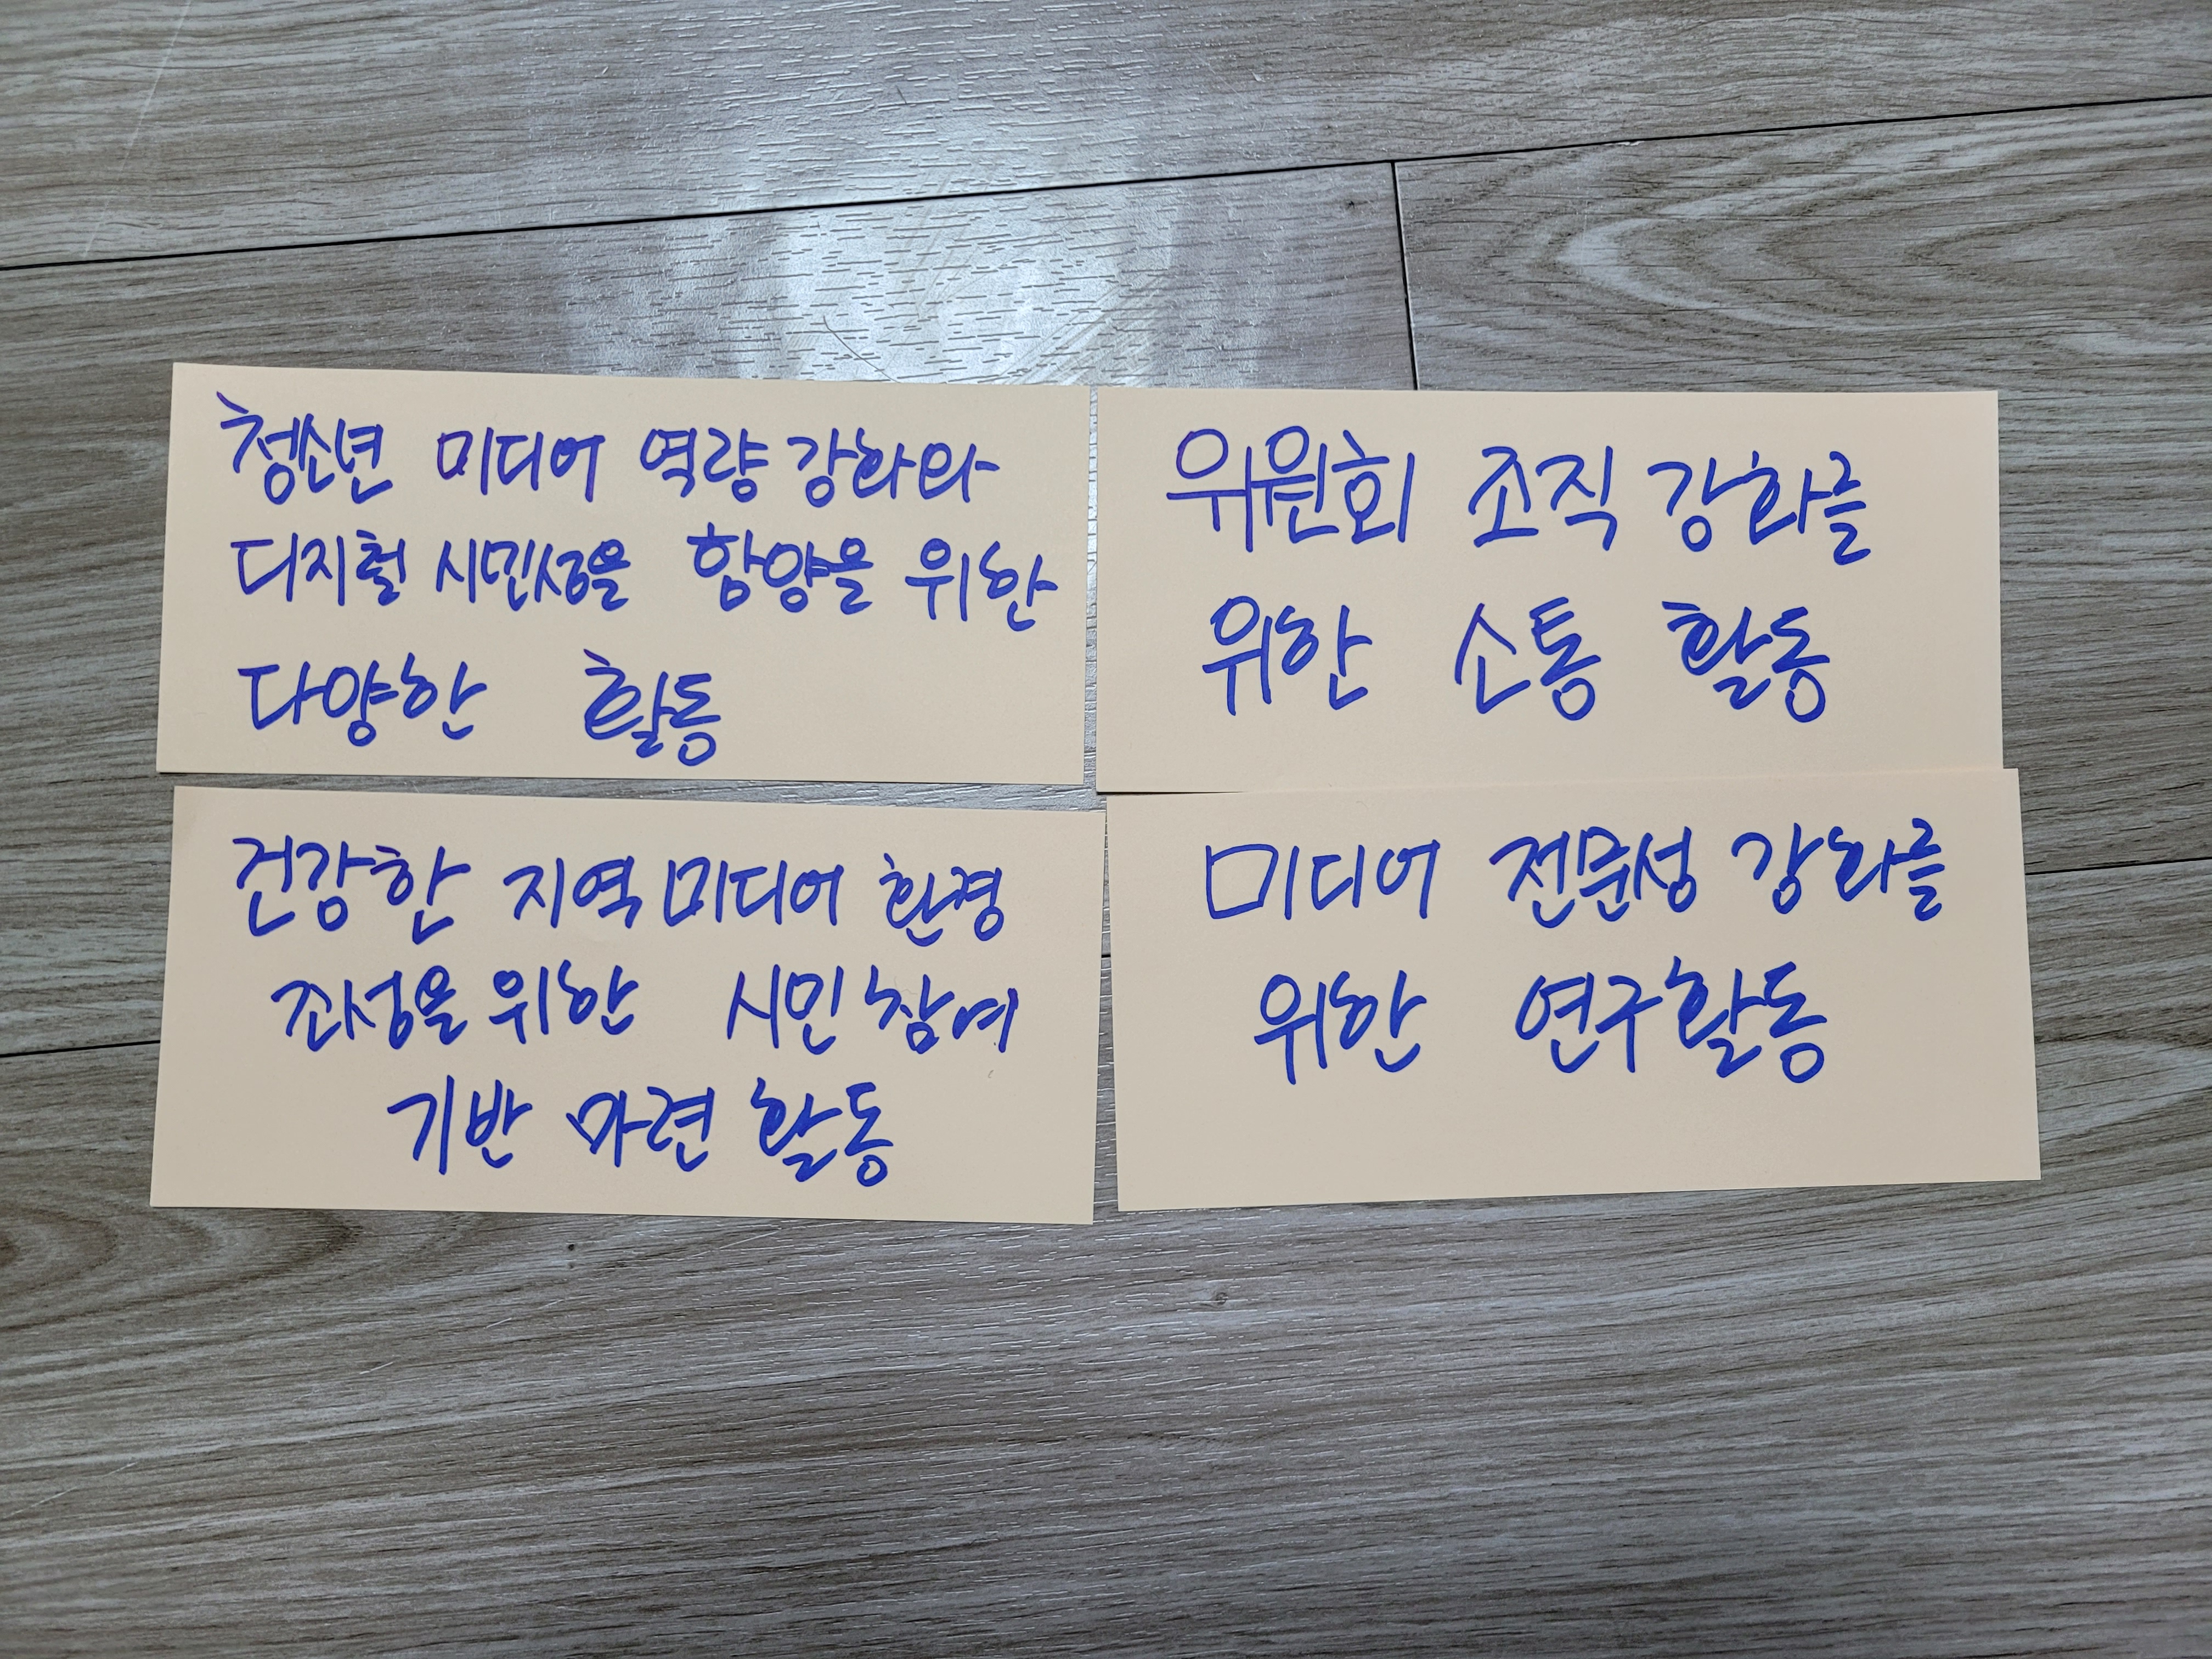 청소년 미디어 역량 강화와
디지털 시민성을 함양을 위한
다양한 활동
위원회 조직 강화를
위한 소통 활동
건강한 지역 미디어 환경
조성을 위한 시민 참여
기반 마련 활동
미디어 전문성 강화를
위한 연구활동